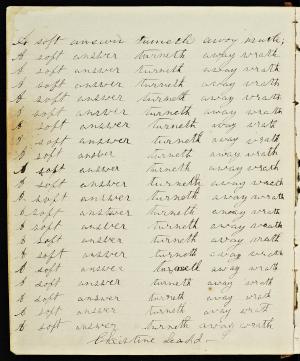 A soft answer turneth away wrath;
A soft answer turneth away wrath
A soft answer turneth away wrath
A soft answer turneth away wrath
A soft answer turneth away wrath
A soft answer turneth away wrath
A soft answer turneth away wrath
A soft answer turneth away wrath
A soft answer turneth away wrath
A soft answer turneth away wrath
A soft answer turneth away wrath
A soft answer turneth away wrath
A soft answer turneth away wrath
A soft answer turneth away wrath
A soft answer turneth away wrath
A soft answer turneth away wrath
A soft answer turneth away wrath
A soft answer turneth away wrath
A soft answer turneth away wrath
A soft answer turneth away wrath
A soft answer turneth away wrath
Christine